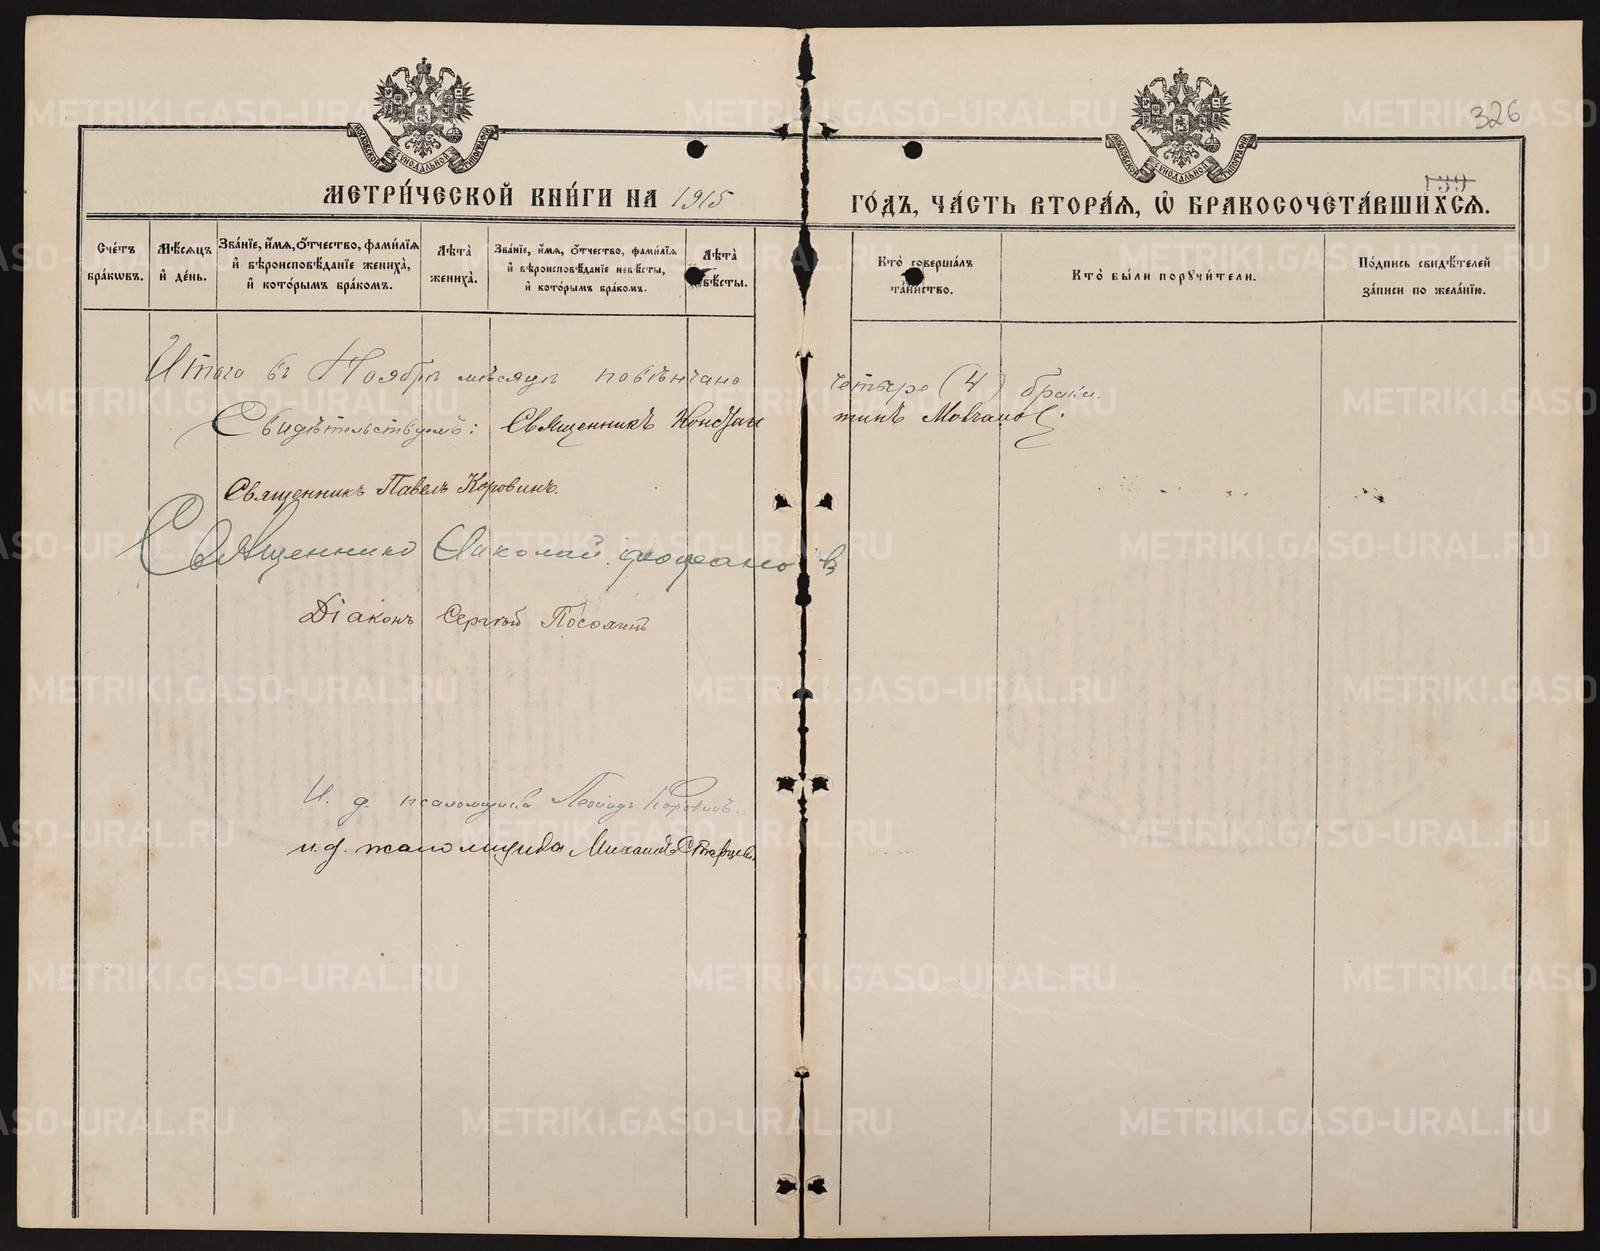 326
139
МОСКОВСКОЙ СѴНОДАЛЬНОЙ ТИПОГРАФІИ
МОСКОВСКОЙ СѴНОДАЛЬНОЙ ТИПОГРАФІИ
МЕТРИ́ЧЕСКОЙ КНИ́ГИ НА 1915 ГО́ДЪ, ЧА́СТЬ ВТОРА́Я, Ѡ БРАКОСОЧЕТА́ВШИХСЯ.
Сче́тъ бра́кѡвъ.
Мѣ́сяцъ и҆ де́нь.
Зва́нїе, и҆́мя, ѻ҆́тчество, фами́лїя и҆ вѣроисповѣ́данїе жениха̀, и҆ кото́рымъ бра́комъ.
Лѣта̀ жениха̀.
Зва́нїе, и҆́мя, ѻ҆́тчество, фами́лїя и҆ вѣроисповѣ́данїе невѣ́сты, и҆ кото́рымъ бра́комъ.
Лѣта̀ невѣ́сты.
Кто̀ соверша́лъ та́инство.
Кто̀ бы́ли порꙋчи́тели.
По́дпись свидѣ́телей за́писи по жела́нїю.
Итого въ Ноябрѣ мѣсяцѣ повѣнчано четыре (4) брака.
Свидѣтельствуемъ: Священникъ Константинъ Молчанов
Священникъ Павелъ Коровинъ.
Священникъ Николай Феофанов
Діаконъ Сергѣй
И. д. псаломщика Леонидъ Коровинъ.
и.д. псаломщика Михаилъ Старцевъ
METRIKI.GASO-URAL.RU